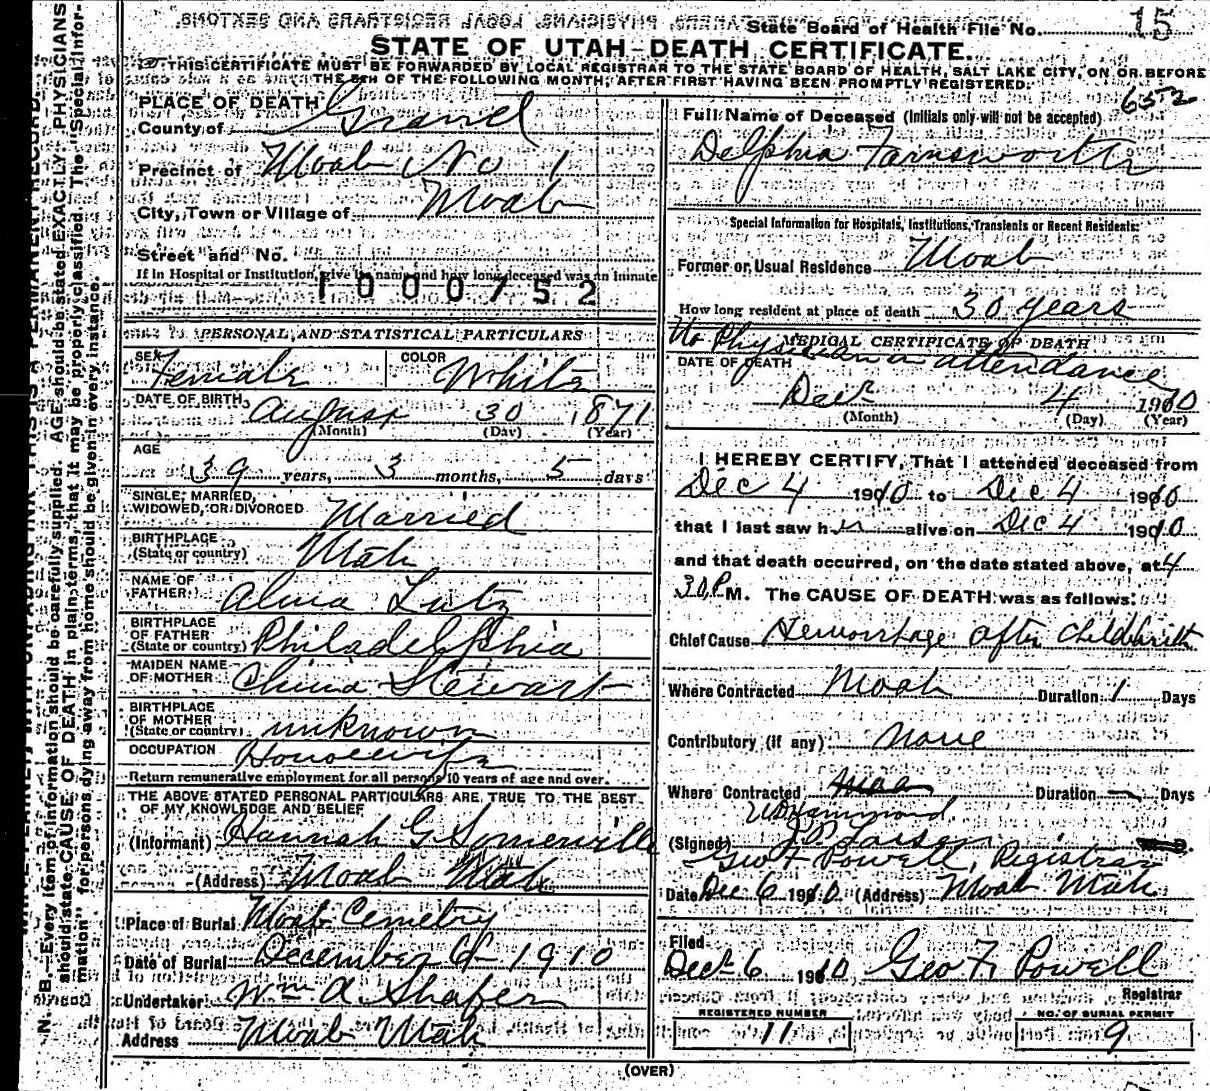 State Board of Health File No. 15
STATE OF UTAH—DEATH CERTIFICATE.
THIS CERTIFICATE MUST BE FORWARDED BY LOCAL REGISTRAR TO THE STATE BOARD OF HEALTH, SALT LAKE CITY, ON OR BEFORE
THE 5TH OF THE FOLLOWING MONTH, AFTER FIRST HAVING BEEN PROMPTLY REGISTERED.
PLACE OF DEATH
County of Grand
Precinct of Moab No 1
City, Town or Village of Moab
Street and No.
If in Hospital or Institution, give its name and how long deceased was an inmate
1000752
PERSONAL AND STATISTICAL PARTICULARS
SEX Female COLOR White
DATE OF BIRTH August 30 1871
(Month) (Day) (Year)
AGE
39 years, 3 months, 5 days
SINGLE, MARRIED,
WIDOWED, OR DIVORCED Married
BIRTHPLACE
(State or country) Utah
NAME OF
FATHER Alma Lutz
BIRTHPLACE
OF FATHER
(State or country) Philadelphia
MAIDEN NAME
OF MOTHER Stewart
BIRTHPLACE
OF MOTHER
(State or country) unknown
OCCUPATION Housewife
Return remunerative employment for all persons 10 years of age and over.
THE ABOVE STATED PERSONAL PARTICULARS ARE TRUE TO THE BEST
OF MY KNOWLEDGE AND BELIEF
(Informant) Hannah G. Somerville
(Address) Moab Utah
Place of Burial Moab Cemetry
Date of Burial December 6th 1910
Undertaker Wm A. Shafer
Address Moab Utah
6552
Full Name of Deceased (Initials only will not be accepted)
Delphia Farnsworth
Special Information for Hospitals, Institutions, Transients or Recent Residents:
Former or Usual Residence Moab
How long resident at place of death 30 years
No Physician in attendance
MEDICAL CERTIFICATE OF DEATH
DATE OF DEATH
Decr 4 1910
(Month) (Day) (Year)
I HEREBY CERTIFY, That I attended deceased from
Dec 4 1910 to Dec 4 1910
that I last saw her alive on Dec 4 1910
and that death occurred, on the date stated above, at 4
30 P M. The CAUSE OF DEATH was as follows:
Chief Cause Hemorrhage after Childbirth
Where Contracted Moab Duration 1 Days
Contributory (if any) None
Where Contracted Duration — Days
Hammond
(Signed) J.P. Larsen
Geo F Powell, Registrar
Date Dec 6 1910 (Address) Moab Utah
Filed
Decr 6 1910 Geo F. Powell
Registrar
REGISTERED NUMBER
11
NO. OF BURIAL PERMIT
9
(OVER)
N. B.—Every item of information should be carefully supplied. AGE should be stated EXACTLY. PHYSICIANS
should state CAUSE OF DEATH in plain terms, that it may be properly classified. The "Special Infor-
mation" for persons dying away from home should be given in every instance.